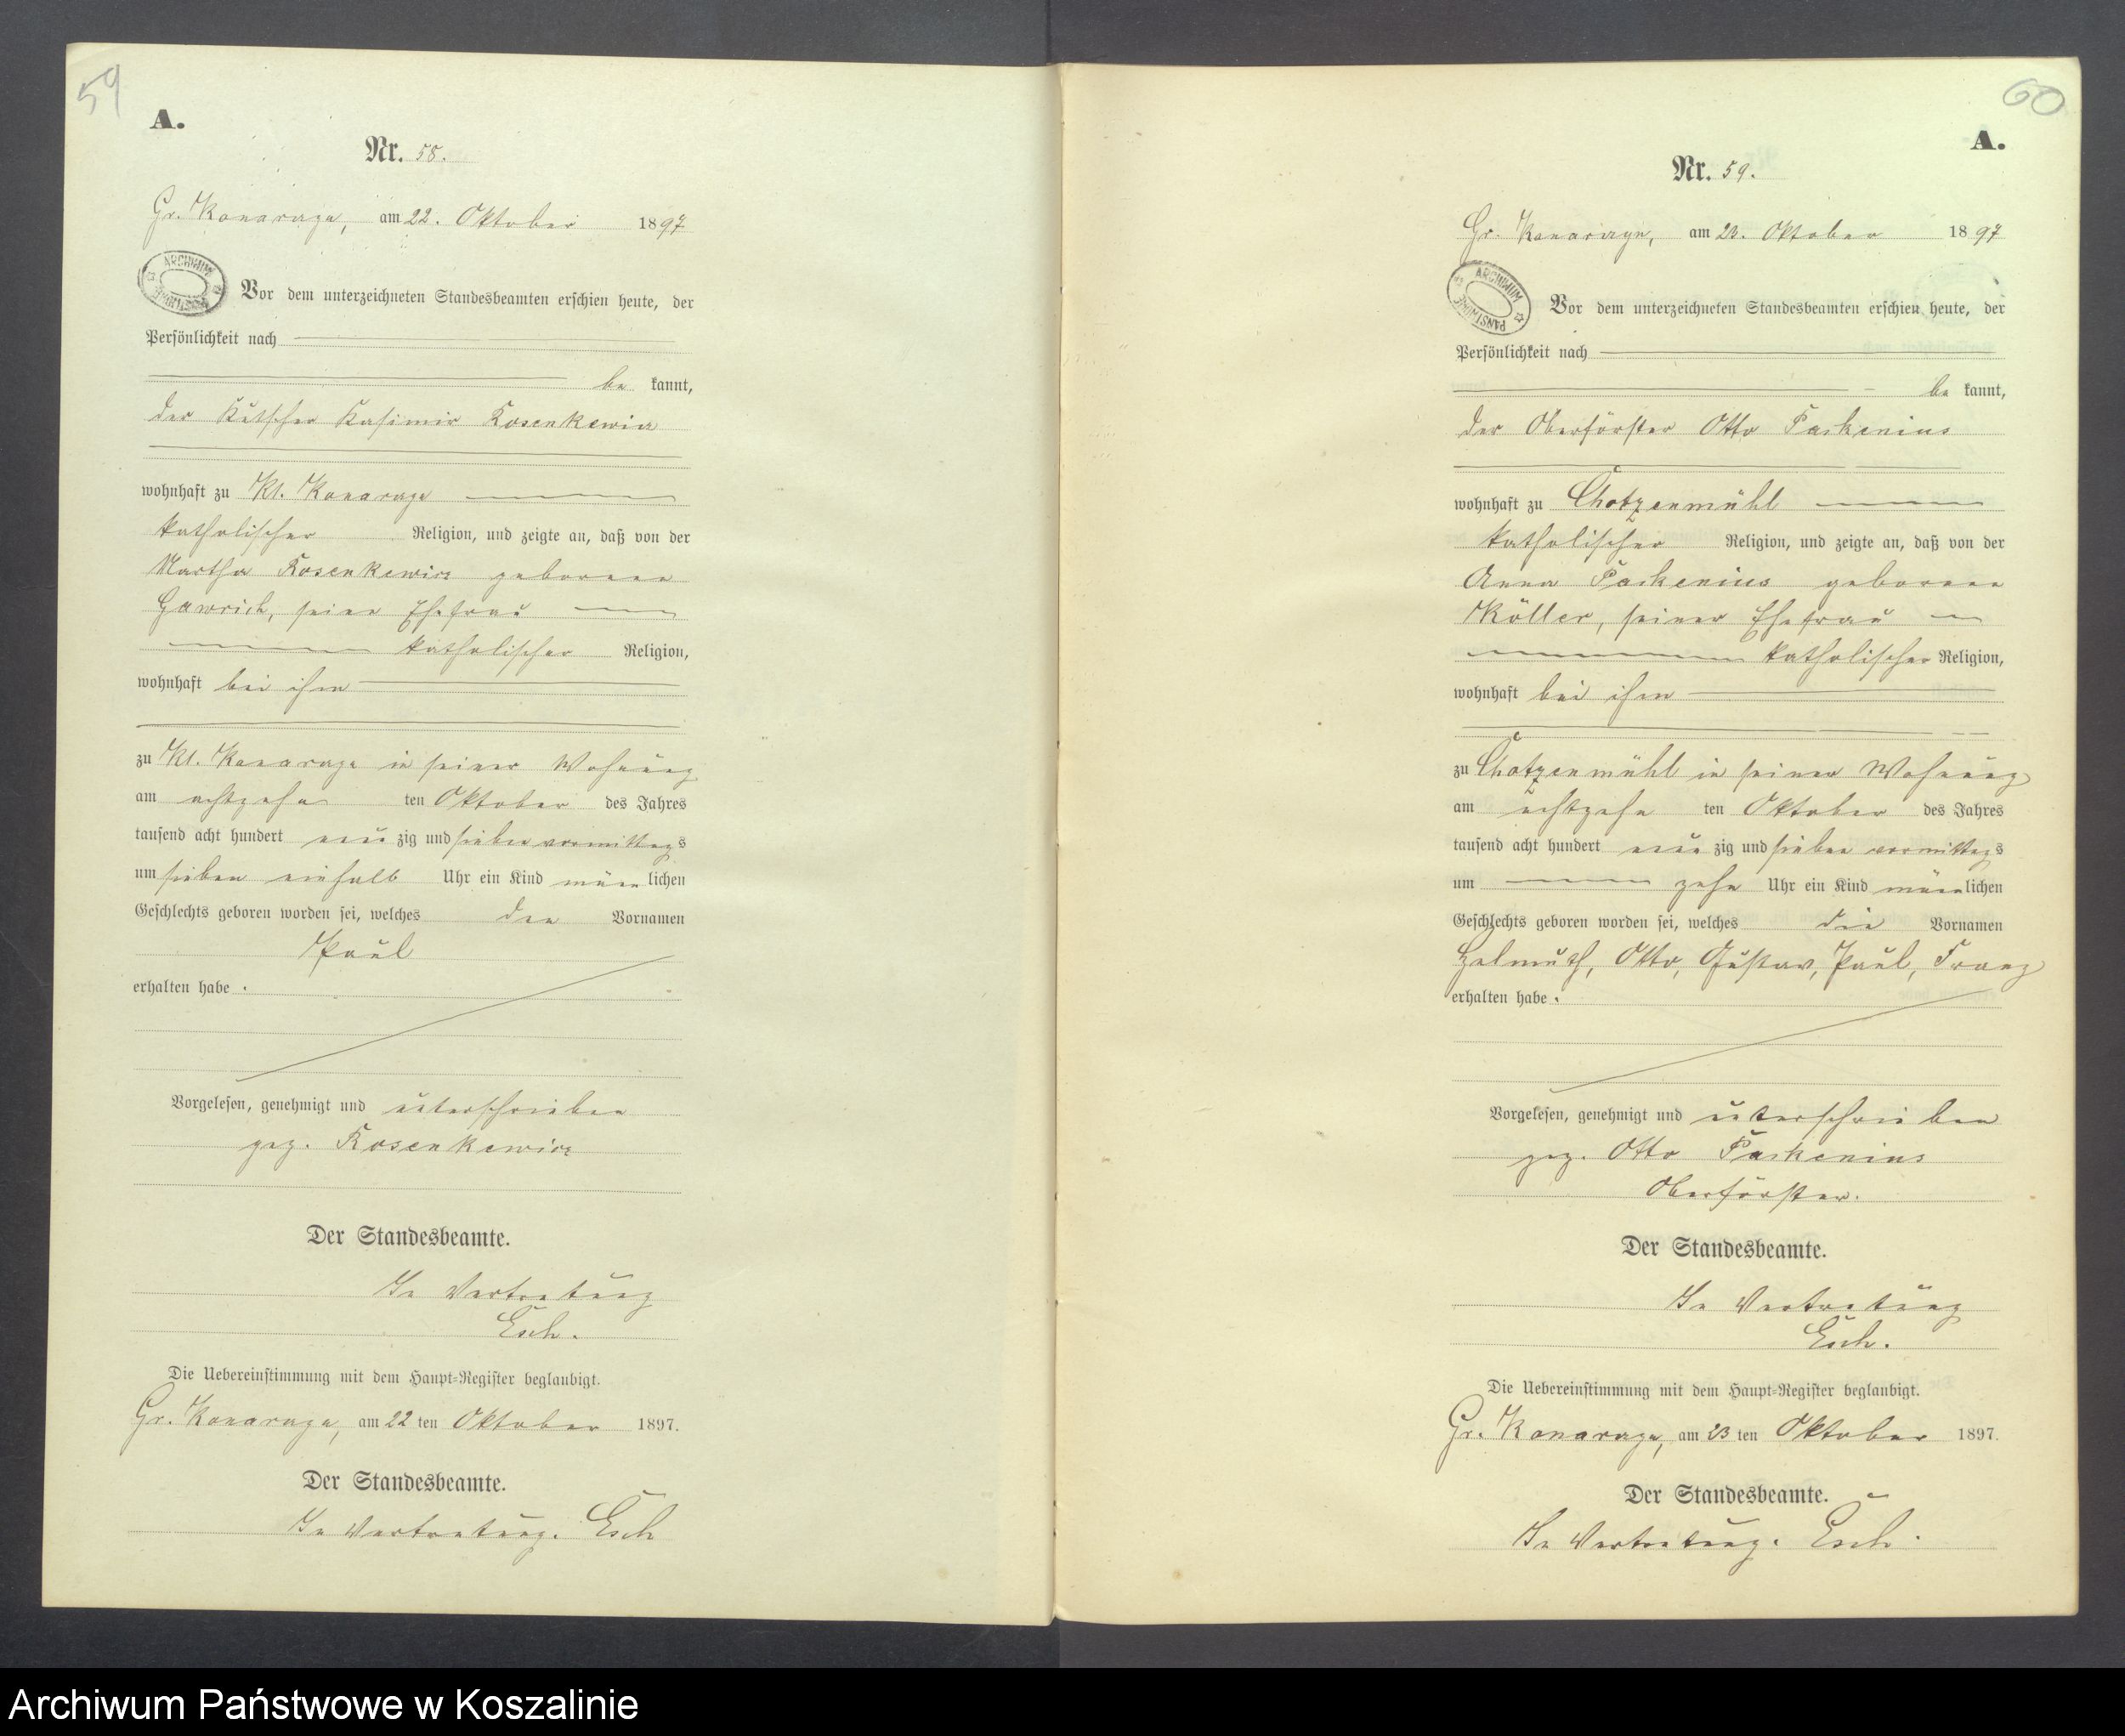 59
A.
Nr. 58.
Gr. Konarzyn, am 22. Oktober 1897
ARCHIWUM PAŃSTWOWE
Vor dem unterzeichneten Standesbeamten erschien heute, der
Persönlichkeit nach
be kannt,
der Kutscher Kasimir Rosenkewicz
wohnhaft zu Kl. Konarzyn
katholischer Religion, und zeigte an, daß von der
Martha Rosenkewicz geborenen
Gawrich, seiner Ehefrau
katholischer Religion,
wohnhaft bei ihm
zu Kl. Konarzyn in seiner Wohnung
am achtzehn ten Oktober des Jahres
tausend acht hundert neun zig und sieben vormittags
um sieben einhalb Uhr ein Kind männ lichen
Geschlechts geboren worden sei, welches den Vornamen
Paul
erhalten habe.
Vorgelesen, genehmigt und unterschrieben
gez. Rosenkewicz
Der Standesbeamte.
In Vertretung
Esch.
Die Uebereinstimmung mit dem Haupt-Register beglaubigt.
Gr. Konarzyn, am 22 ten Oktober 1897.
Der Standesbeamte.
In Vertretung. Esch
60
A.
Nr. 59.
Gr. Konarzyn, am 23. Oktober 1897
ARCHIWUM PAŃSTWOWE
Vor dem unterzeichneten Standesbeamten erschien heute, der
Persönlichkeit nach
be kannt,
der Oberförster Otto Paskenius
wohnhaft zu Chotzenmühl
katholischer Religion, und zeigte an, daß von der
Anna Paskenius geborenen
Möller, seiner Ehefrau
katholischer Religion,
wohnhaft bei ihm
zu Chotzenmühl in seiner Wohnung
am achtzehn ten Oktober des Jahres
tausend acht hundert neun zig und sieben vormittags
um zehn Uhr ein Kind männlichen
Geschlechts geboren worden sei, welches die Vornamen
Helmuth, Otto, Gustav, Paul, Franz
erhalten habe.
Vorgelesen, genehmigt und unterschrieben
gez. Otto Paskenius
Oberförster.
Der Standesbeamte.
In Vertretung
Esch.
Die Uebereinstimmung mit dem Haupt-Register beglaubigt.
Gr. Konarzyn, am 23 ten Oktober 1897.
Der Standesbeamte.
In Vertretung. Esch.
Archiwum Państwowe w Koszalinie